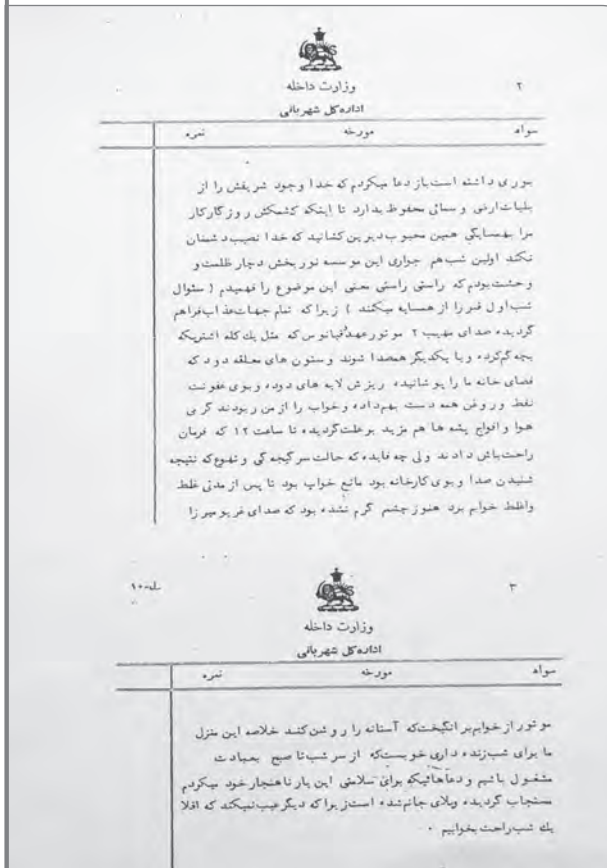 وزارت داخله
۲
اداره کل شهربانی
سواد مورخه نمره
بوری داشته است باز دعا میکردم که خدا وجود شریفش را از
بلیات ارضی و سمائی محفوظ بدارد تا اینکه کشمکش روزگار کار
مرا بهمسایگی همین محبوب دیرین کشانید که خدا نصیب دشمنان
نکند اولین شب هم جواری این موسسه نور بخش دچار ظلمت و
وحشت بودم که راستی راستی معنی این موضوع را فهمیدم ( سئوال
شب اول قبر را از همسایه میکنند ) زیرا که تمام جهات عذاب فراهم
گردیده صدای مهیب ۲ موتور عهد دقیانوس که مثل یك كله اشتریكه
بچه گم کرده و با یکدیگر همصدا شوند و ستون های معلقه دود که
فضای خانه ما را پوشانیده ریزش لایه های دوده و بوی عفونت
نفط و روغن همه دست بهم داده و خواب را از من ربودند گرمی
هوا و افواج پشه ها هم مزید بر علت گردیده تا ساعت ۱۲ که فرمان
راحت باش دادند ولی چه فایده که حالت سرگیجه گی و تهوع که نتیجه
شنیدن صدا و بوی کارخانه بود مانع خواب بود تا پس از مدتی غلط
واغلط خوابم برد هنوز چشمم گرم نشده بود که صدای غریو میرزا
۳
وزارت داخله
اداره کل شهربانی
سواد مورخه نمره
موتور از خوابم بر انگیخت که آستانه را روشن کند خلاصه این منزل
ما برای شب زنده داری خوبست که از سر شب تا صبح بعبادت
مشغول باشیم و دعاهائیکه برای سلامتی این یار ناهنجار خود میکردم
مستجاب گردیده وبلای جانم شده است زیرا که دیگر عیب نمیکند که اقلا
یك شب راحت بخوابیم ۰